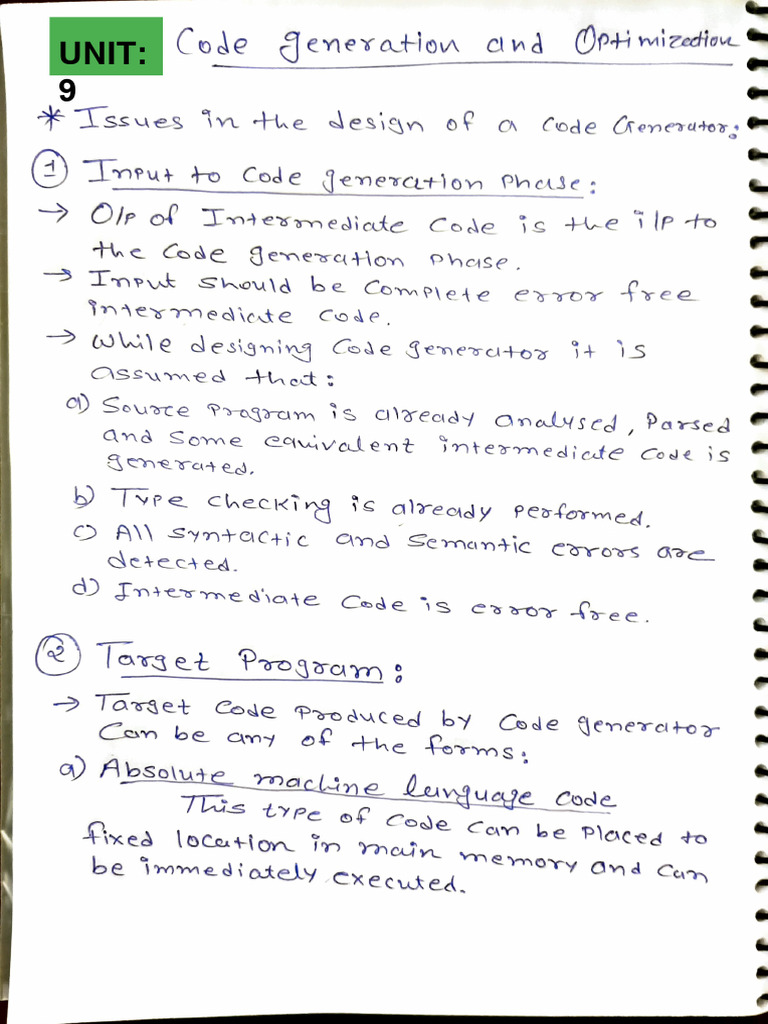 UNIT:
9
Code generation and Optimization
* Issues in the design of a Code Generator:
① Input to Code generation Phase:
→ O/p of Intermediate Code is the i/p to
the Code generation phase.
→ Input should be complete error free
intermediate code.
→ While designing Code generator it is
assumed that:
a) Source Program is already analysed, Parsed
and some equivalent intermediate code is
generated.
b) Type checking is already performed.
c) All syntactic and semantic errors are
detected.
d) Intermediate Code is error free.
② Target Program:
→ Target Code produced by Code generator
Can be any of the forms:
a) Absolute machine language code
This type of code can be placed to
fixed location in main memory and can
be immediately executed.